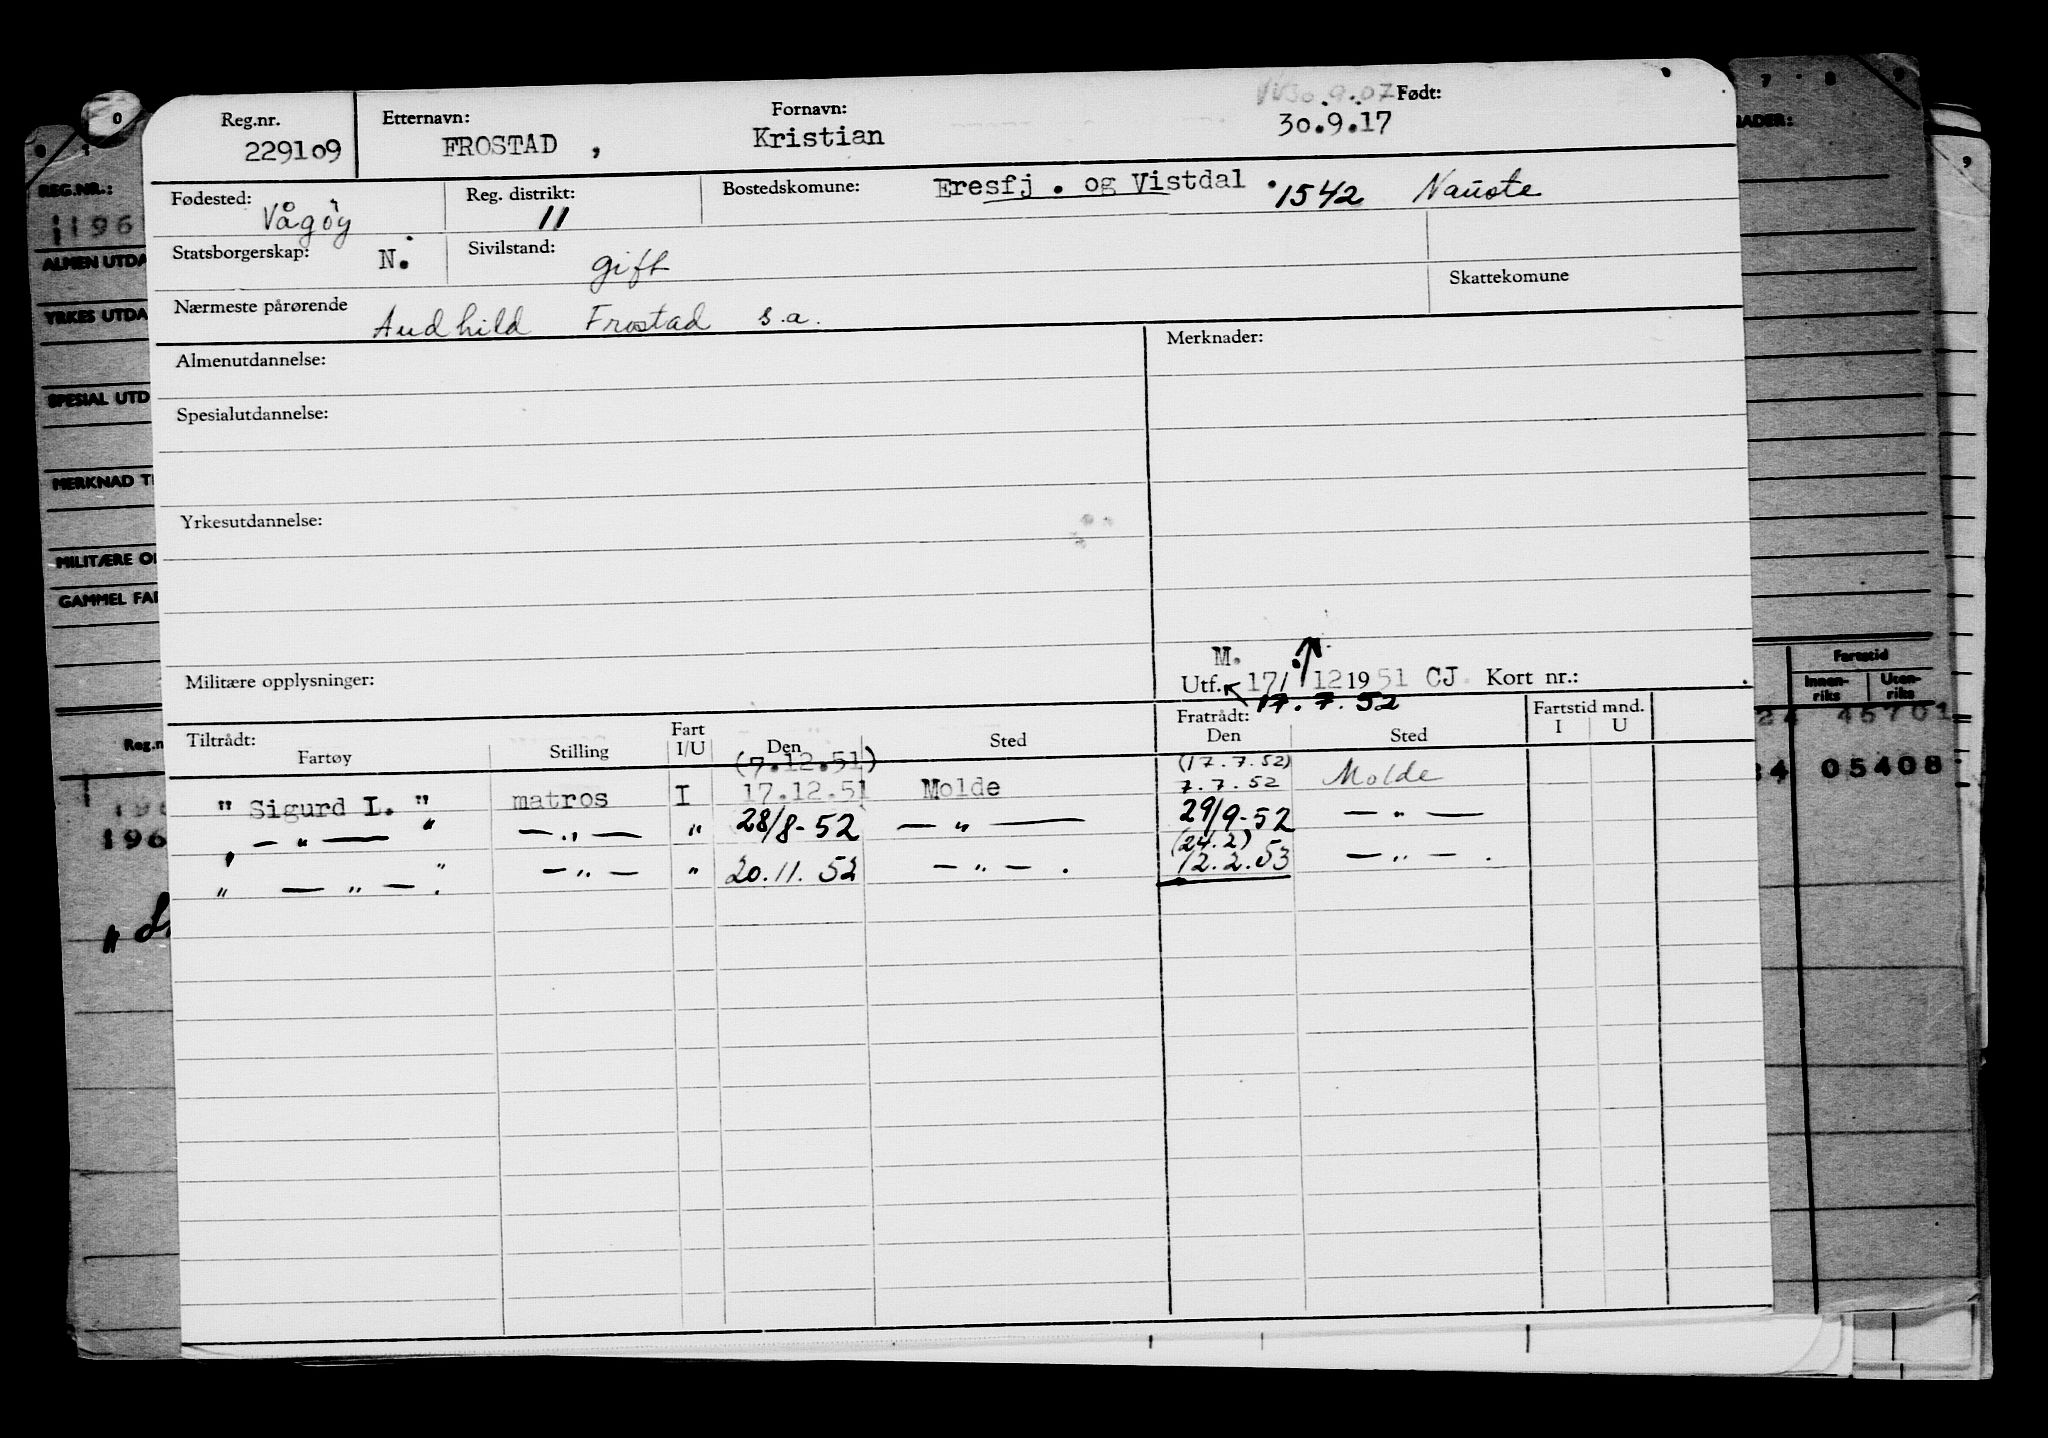 Reg.nr. 229109 Etternavn: FROSTAD , Fornavn: Kristian 30.9.07 Født: 30.9.17
Fødested: Vågøy Reg. distrikt: 11 Bostedskomune: Eresfj . og Vistdal . 1542 Nauste
Statsborgerskap: N. Sivilstand: gift
Skattekomune
Nærmeste pårørende Audhild Frostad s.a.
Almenutdannelse: Merknader:
Spesialutdannelse:
Yrkesutdannelse:
M.
Militære opplysninger: Utf. 17/ 12 19 51 CJ. Kort nr.:
17.7.52
Tiltrådt: Fratrådt: Fartstid mnd.
Fartøy Stilling Fart I/U Den Sted Den Sted I U
(7.12.51) (17.7.52)
" Sigurd L. " matros I 17.12.51 Molde 7.7.52 Molde
" — " — " — " — " 28/8-52 — " — 29/9-52 — " —
(24.2)
" — " — . " — " — " 20.11.52 — " — . 12.2.53 — " — .
0 1 7 8 9
REG.NR.:
1196
ALMEN UTDA
YRKES UTDA
SPESIAL UTD
MERKNAD T
MILITÆRE O
GAMMEL FA
Reg.n
196
196
NADER:
Fartstid
Innen-riks Uten-riks
24 45701
34 05408
9